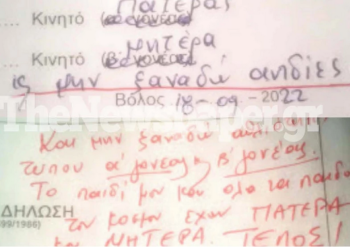 ΠΑΤΕΡΑΣ
... Κινητό (α' γονέα)
ΜΗΤΕΡΑ
... Κινητό (β' γονέα)
μην ξαναδώ αηδίες
TheNewspaper.gr
Βόλος 18-09-2022
Και μην ξαναδώ αηδίες
τύπου α' γονέας, β' γονέας.
Το παιδί μου και όλα τα παιδιά
ΔΗΛΩΣΗ του κόσμου έχουν ΠΑΤΕΡΑ
99/1986) και ΜΗΤΕΡΑ. ΤΕΛΟΣ!